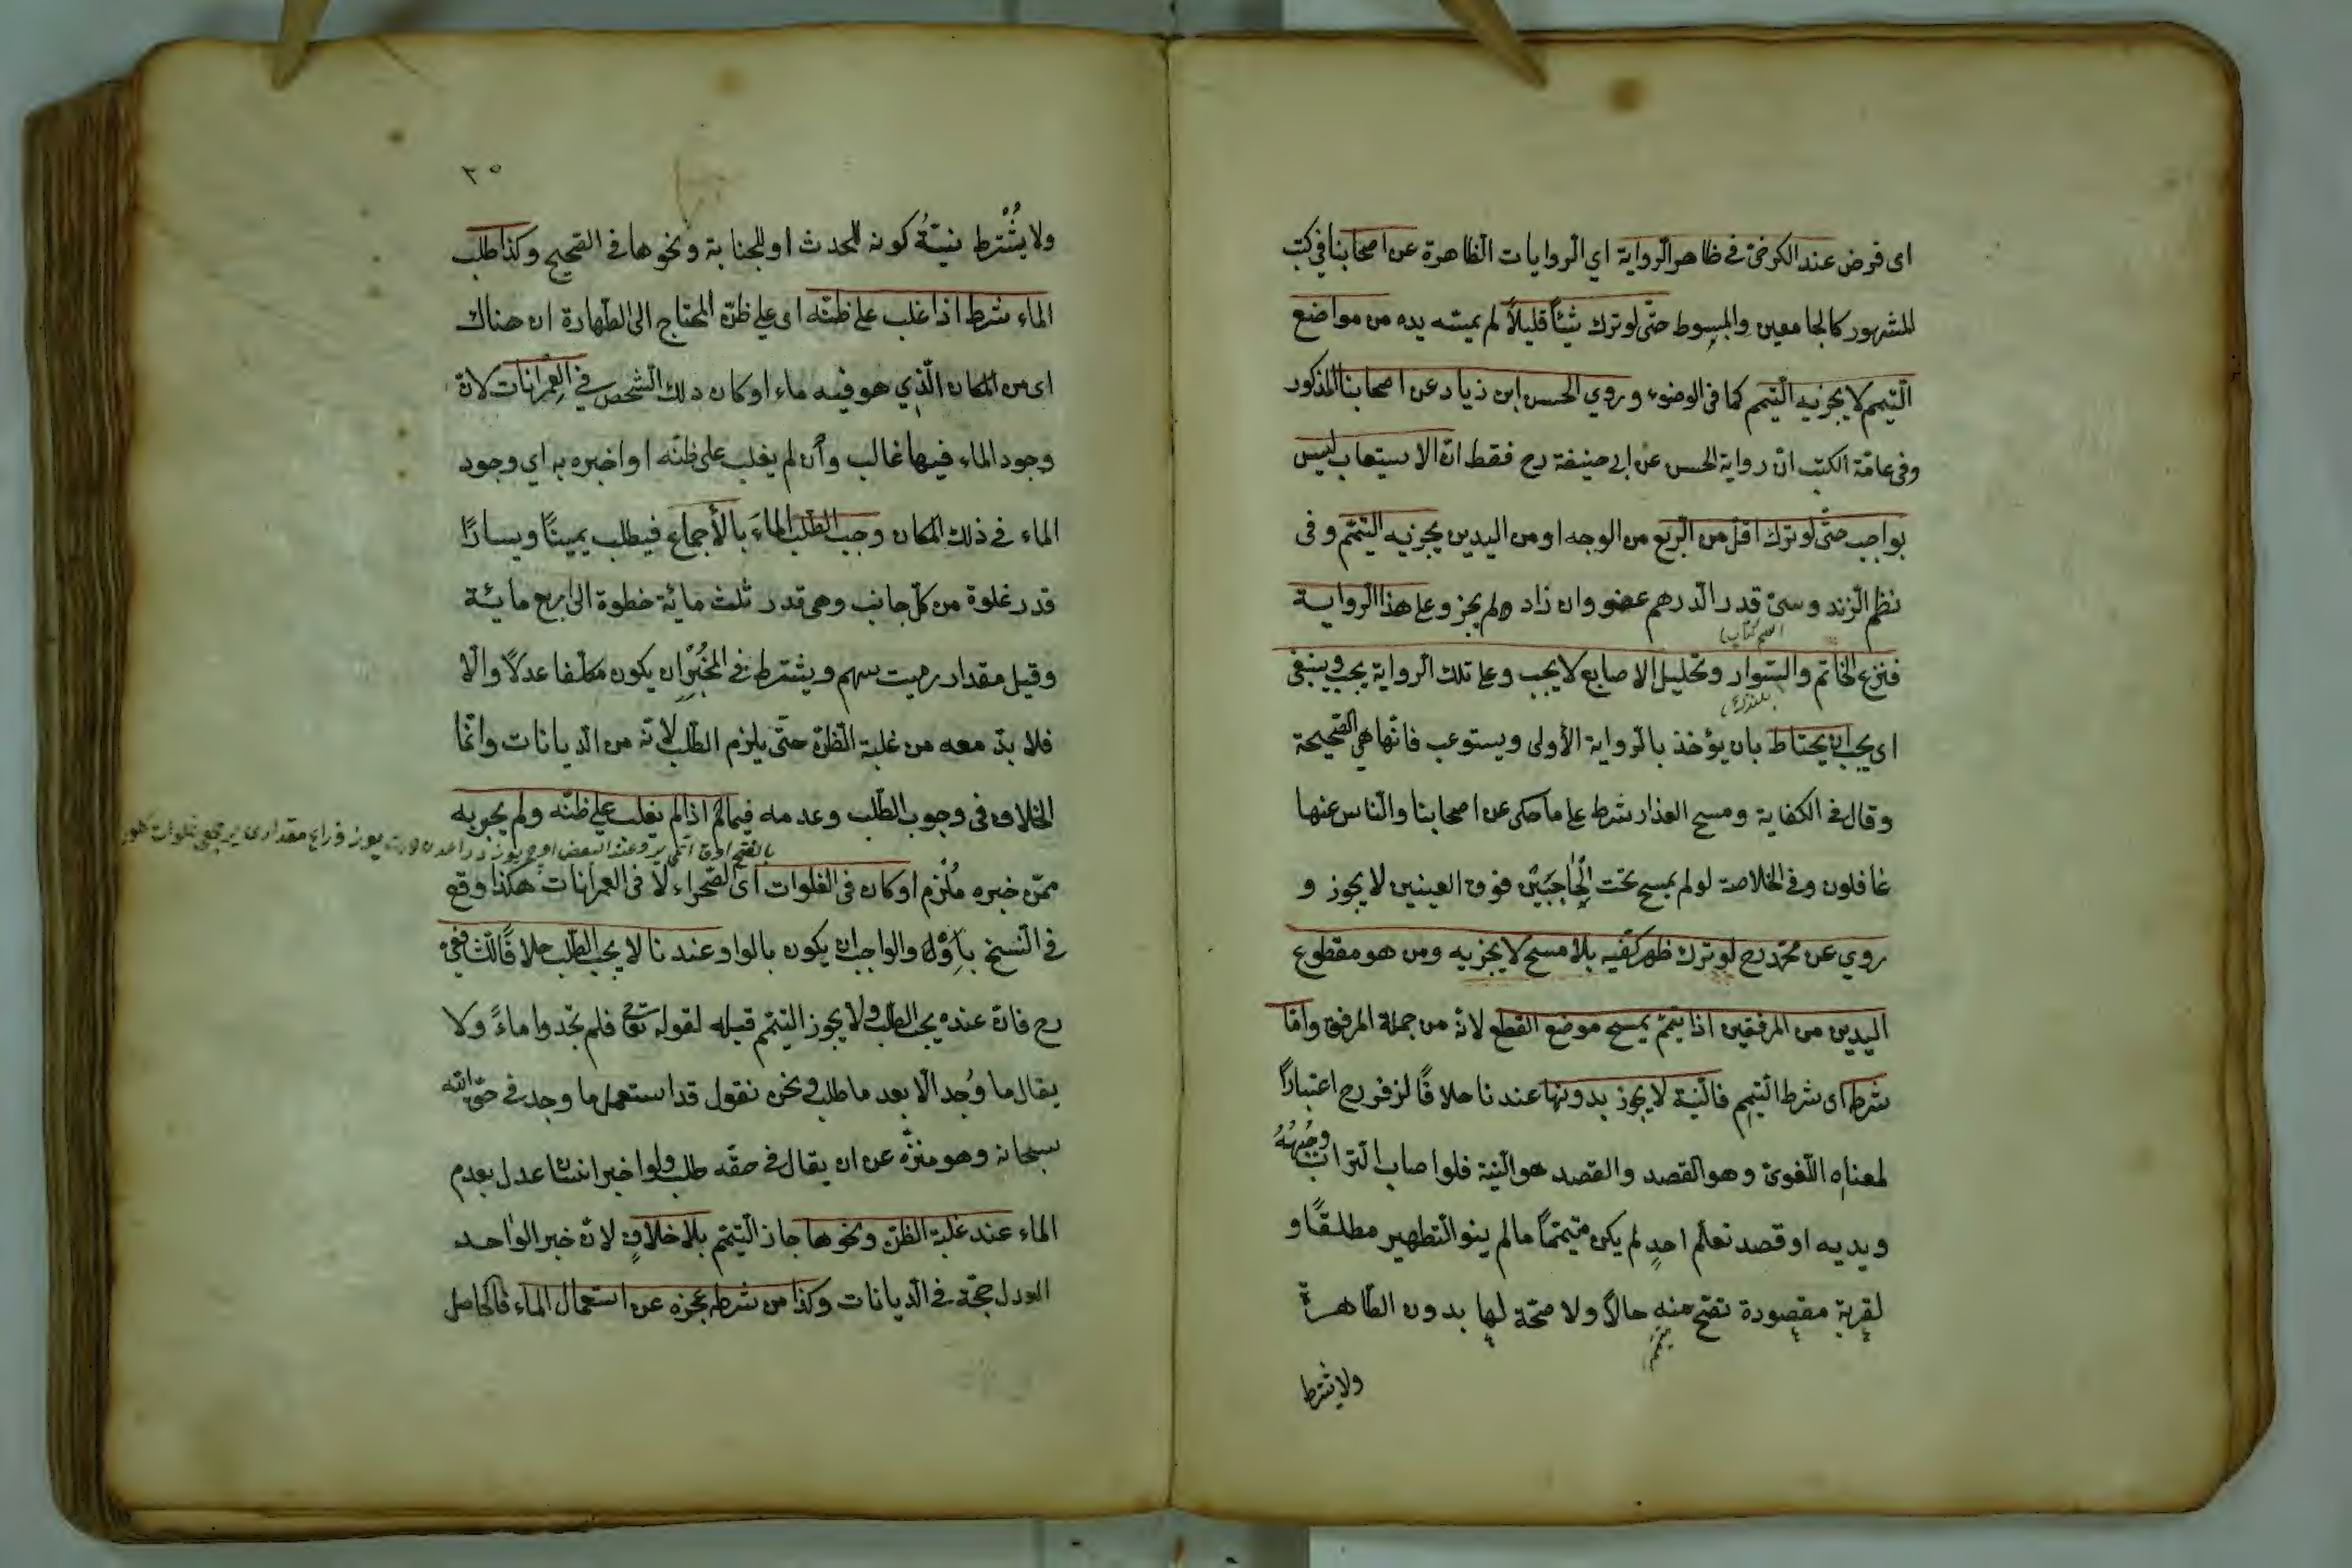 اى فرض عند الكرخىّ فى ظاهر الرّواية اي الّروايات الظاهرة عن اصحابنا فى كتب
المشهور كالجامعين والمبسوط حتّى لو ترك شيئًا قليلاً لم يمسّه يده من مواضع
التّيمم لا يجزيه التّيمم كما فى الوضوء وروي الحسن ابن زياد عن اصحابنا المذكور
وفى عامّة الكتب انّ رواية الحسن عن ابى حنيفة رح فقط انّ الاستيعاب ليس
بواجب حتّى لو ترك اقلّ من الّربع من الوجه او من اليدين يجزيه التيمّم و فى
نظم الّزند وسىّ قدر الّدرهم عضو وان زاد ولم يجز وعلى هذا الّرواية
اسم كتاب
فنزع الخاتم والسّوار وتخليل الاصابع لا يجب وعلى تلك الّرواية يجب وينبغى
بلنزك
اى يجب ان يحتاط بان يؤخذ بالّرواية الأولى ويستوعب فانّها هى الصّحيحة
وقال فى الكفاية ومسح العذار شرط على ما حكى عن اصحابنا والنّاس عنها
غافلون وفى الخلاصة لو لم يمسح تحت الْحاجبَيْن فوق العينين لا يجوز و
روي عن محمّد رح لو ترك ظهر كفّيه بلا مسح لا يجزيه ومن هو مقطوع
اليدين من المرفقين اذا تيمّم يمسح موضع القطع لانّه من جملة المرفق وامّا
شرطه اى شرط التّيمم فالنّية لا يجوز بدونها عندنا خلافًا لزفر رح اعتبارًا
لمعناه اللّغوىّ وهو القصد والقصد هو النّية فلو اصاب التّراب وجْهَهُ
ويديه او قصد تعلّم احدٍ لم يكن متيمّمًا ما لم ينو التّطهير مطلقًا و
لقربة مقصودة تصّح منه حالاً ولا صّحة لها بدون الطّاهرة
تيمّم
ولا يشرط
٣٥
ولا يُشْترط نيّةُ كونه للحدث او للجنابة ونحوها فى الصّحيح وكذا طلب
الماء شرط اذا غلب على ظنّه اى على ظنّ المحتاج الى الطّهارة ان هناك
اى من المكان الّذي هو فيه ماء او كان ذلك الشّخص فى العِمْرانات لانّ
وجود الماء فيها غالب وأن لم يغلب على ظنّه او اخبره به اي وجود
الماء فى ذلك المكان وجب الطّلب الماءَ بالأجماع فيطلب يمينًا ويسارًا
قدر غلوة من كلّ جانب وهى قدر ثلث مائة خطوة الى اربع مائة
وقيل مقدار رميت سهم ويشترط فى المخْبِرْان يكون مكلّفا عدلاً والّا
فلا بدّ معه من غلبة الّظنّ حتّى يلزم الطّلب لانّه من الّديانات وانّما
الخلاف فى وجوب الطّلب وعدمه فيما لم اذا لم يغلب على ظنّه ولم يخبر به
ممّن خبره مُلْزم او كان فى الفلوات اى الصّحراء لا فى العمرانات هكذا وقع
فى النّسخ بأَوْله والواجب ان يكون بالواو عندنا لا يجب الطّلب خلافًا للشّافعىّ
رح فانّ عنده يجب الطّلب ولا يجوز التيمّم قبله لقوله تعالى فلم تجدوا ماءً ولا
يقال ما وُجد الّا بعد ما طلب ونحن نقول قد استعمل ما وجد فى حقّ الله
سبحانه وهو منزّه عن ان يقال فى حقّه طلب ولو اخبر انسان عدل بعدم
الماء عند غلبة الظنّ ونحوها جاز التّيمّم بلا خلافٍ لانّ خبر الواحد
العدل حجّة فى الّديانات وكذا من شرطه عجزه عن استعمال الماء فالحاصل